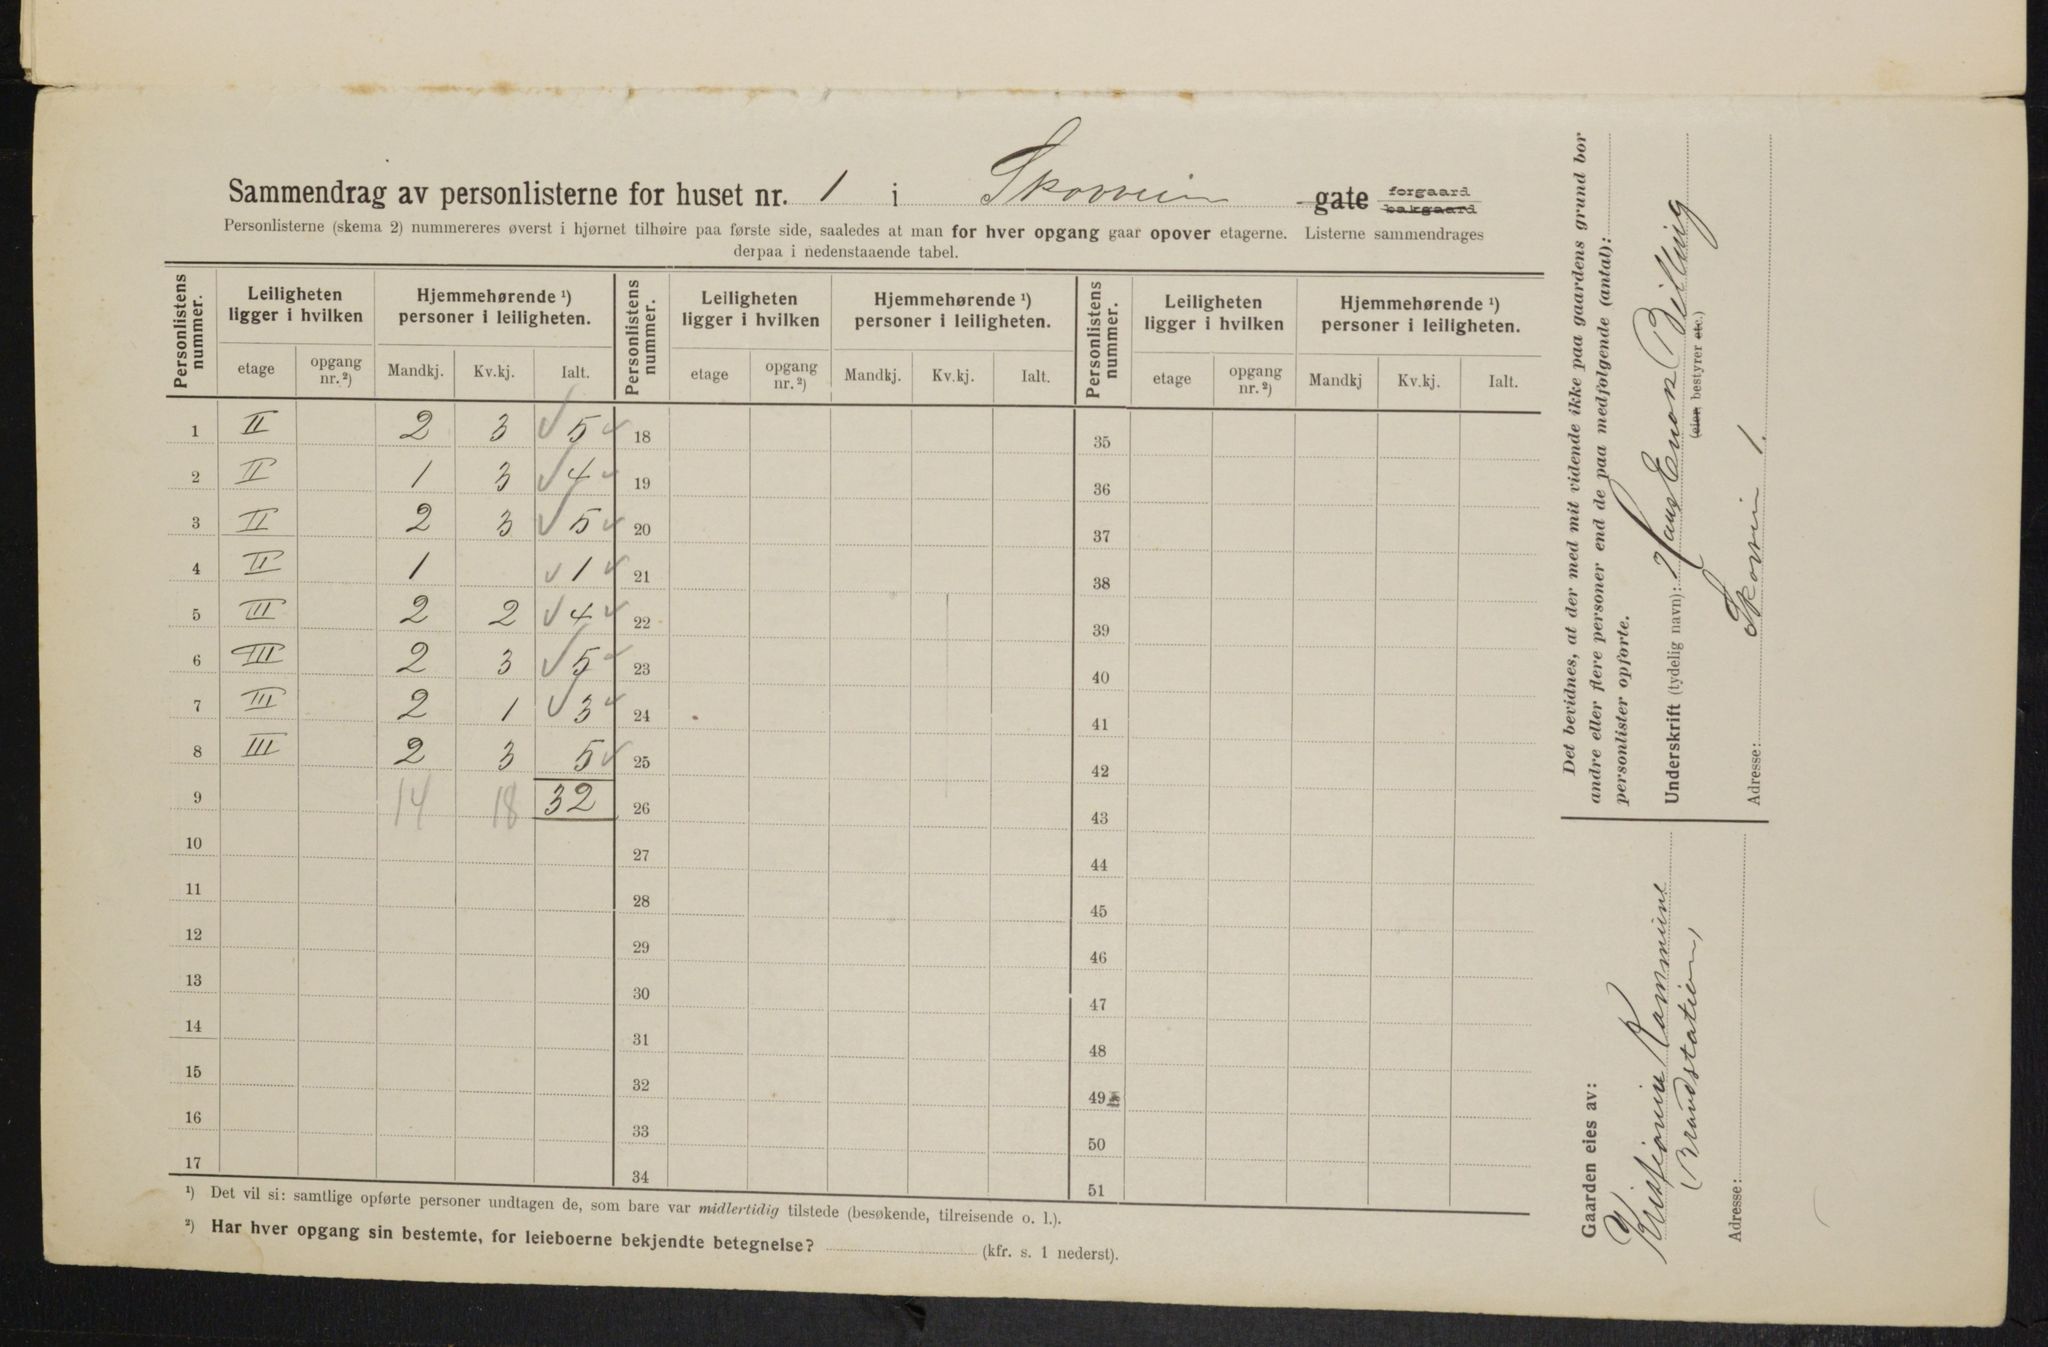 Sammendrag av personlisterne for huset nr. 1 i Skovvein gate forgaard bakgaard
Personlisterne (skema 2) nummereres øverst i hjørnet tilhøire paa første side, saaledes at man for hver opgang gaar opover etagerne. Listerne sammendrages
derpaa i nedenstaaende tabel.
Personlistens nummer. Leiligheten ligger i hvilken Hjemmehørende ¹) personer i leiligheten. Personlistens nummer. Leiligheten ligger i hvilken Hjemmehørende ¹) personer i leiligheten. Personlistens nummer. Leiligheten ligger i hvilken Hjemmehørende ¹) personer i leiligheten.
etage opgang nr. ²) Mandkj. Kv.kj. Ialt. etage opgang nr. ²) Mandkj. Kv.kj. Ialt. etage opgang nr. ²) Mandkj Kv.kj. Ialt.
1 II 2 3 5 18 35
2 II 1 3 4 19 36
3 II 2 3 5 20 37
4 II 1 1 21 38
5 III 2 2 4 22 39
6 III 2 3 5 23 40
7 III 2 1 3 24 41
8 III 2 3 5 25 42
9 14 18 32 26 43
10 27 44
11 28 45
12 29 46
13 30 47
14 31 48
15 32 49
16 33 50
17 34 51
¹) Det vil si: samtlige opførte personer undtagen de, som bare var midlertidig tilstede (besøkende, tilreisende o. l.).
²) Har hver opgang sin bestemte, for leieboerne bekjendte betegnelse? (kfr. s. 1 nederst).
Det bevidnes, at der med mit vidende ikke paa gaardens grund bor
andre eller flere personer end de paa medfølgende (antal):
personlister opførte.
Underskrift (tydelig navn): Hans Enok Billing
(eier, bestyrer etc.)
Adresse: Skovvein 1.
Gaarden eies av:
Kristiania Kommune
Brandstation,
Adresse: